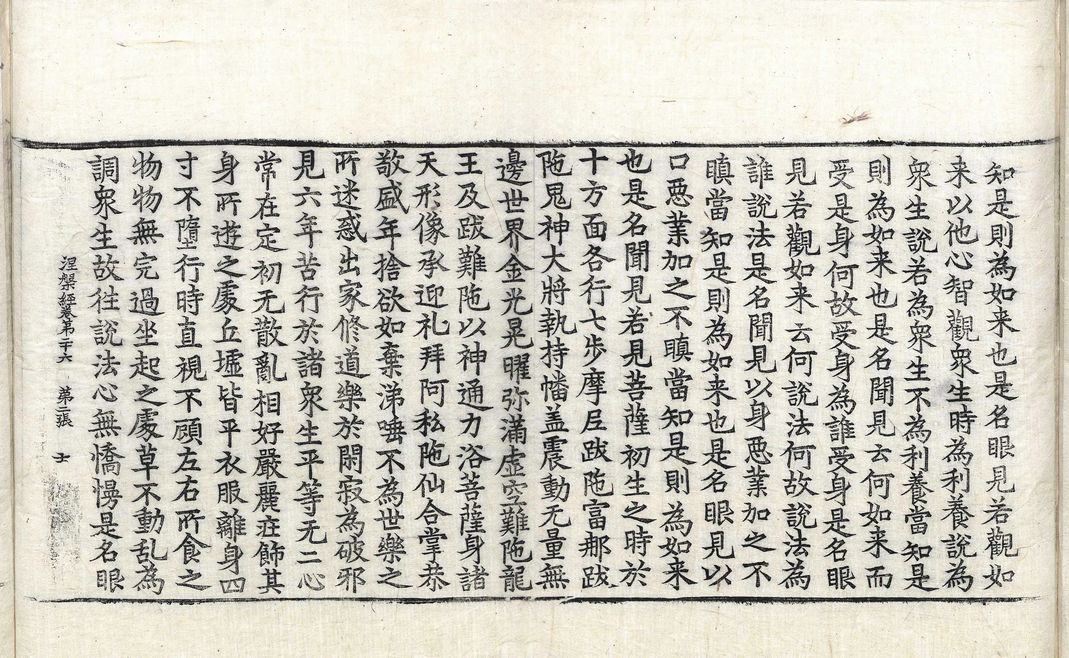 知是則為如来也是名眼見若觀如
来以他心智觀衆生時為利養說為
衆生說若為衆生不為利養當知是
則為如来也是名聞見云何如来而
受是身何故受身為誰受身是名眼
見若觀如来云何說法何故說法為
誰說法是名聞見以身惡業加之不
瞋當知是則為如来也是名眼見以
口惡業加之不瞋當知是則為如来
也是名聞見若見菩薩初生之時於
十方面各行七步摩尼跋陁富那跋
陁鬼神大將執持幡盖震動无量無
邊世界金光晃曜弥滿虚空難陁龍
王及跋難陁以神通力浴菩薩身諸
天形像承迎礼拜阿私陁仙合掌恭
敬盛年捨欲如棄涕唾不為世樂之
所迷惑出家修道樂於閑寂為破邪
見六年苦行於諸衆生平等无二心
常在定初无散亂相好嚴麗莊飾其
身所遊之處丘墟皆平衣服離身四
寸不墮行時直視不顧左右所食之
物物無完過坐起之處草不動乱為
調衆生故往說法心無憍慢是名眼
涅槃經卷苐二十六 苐二張 士